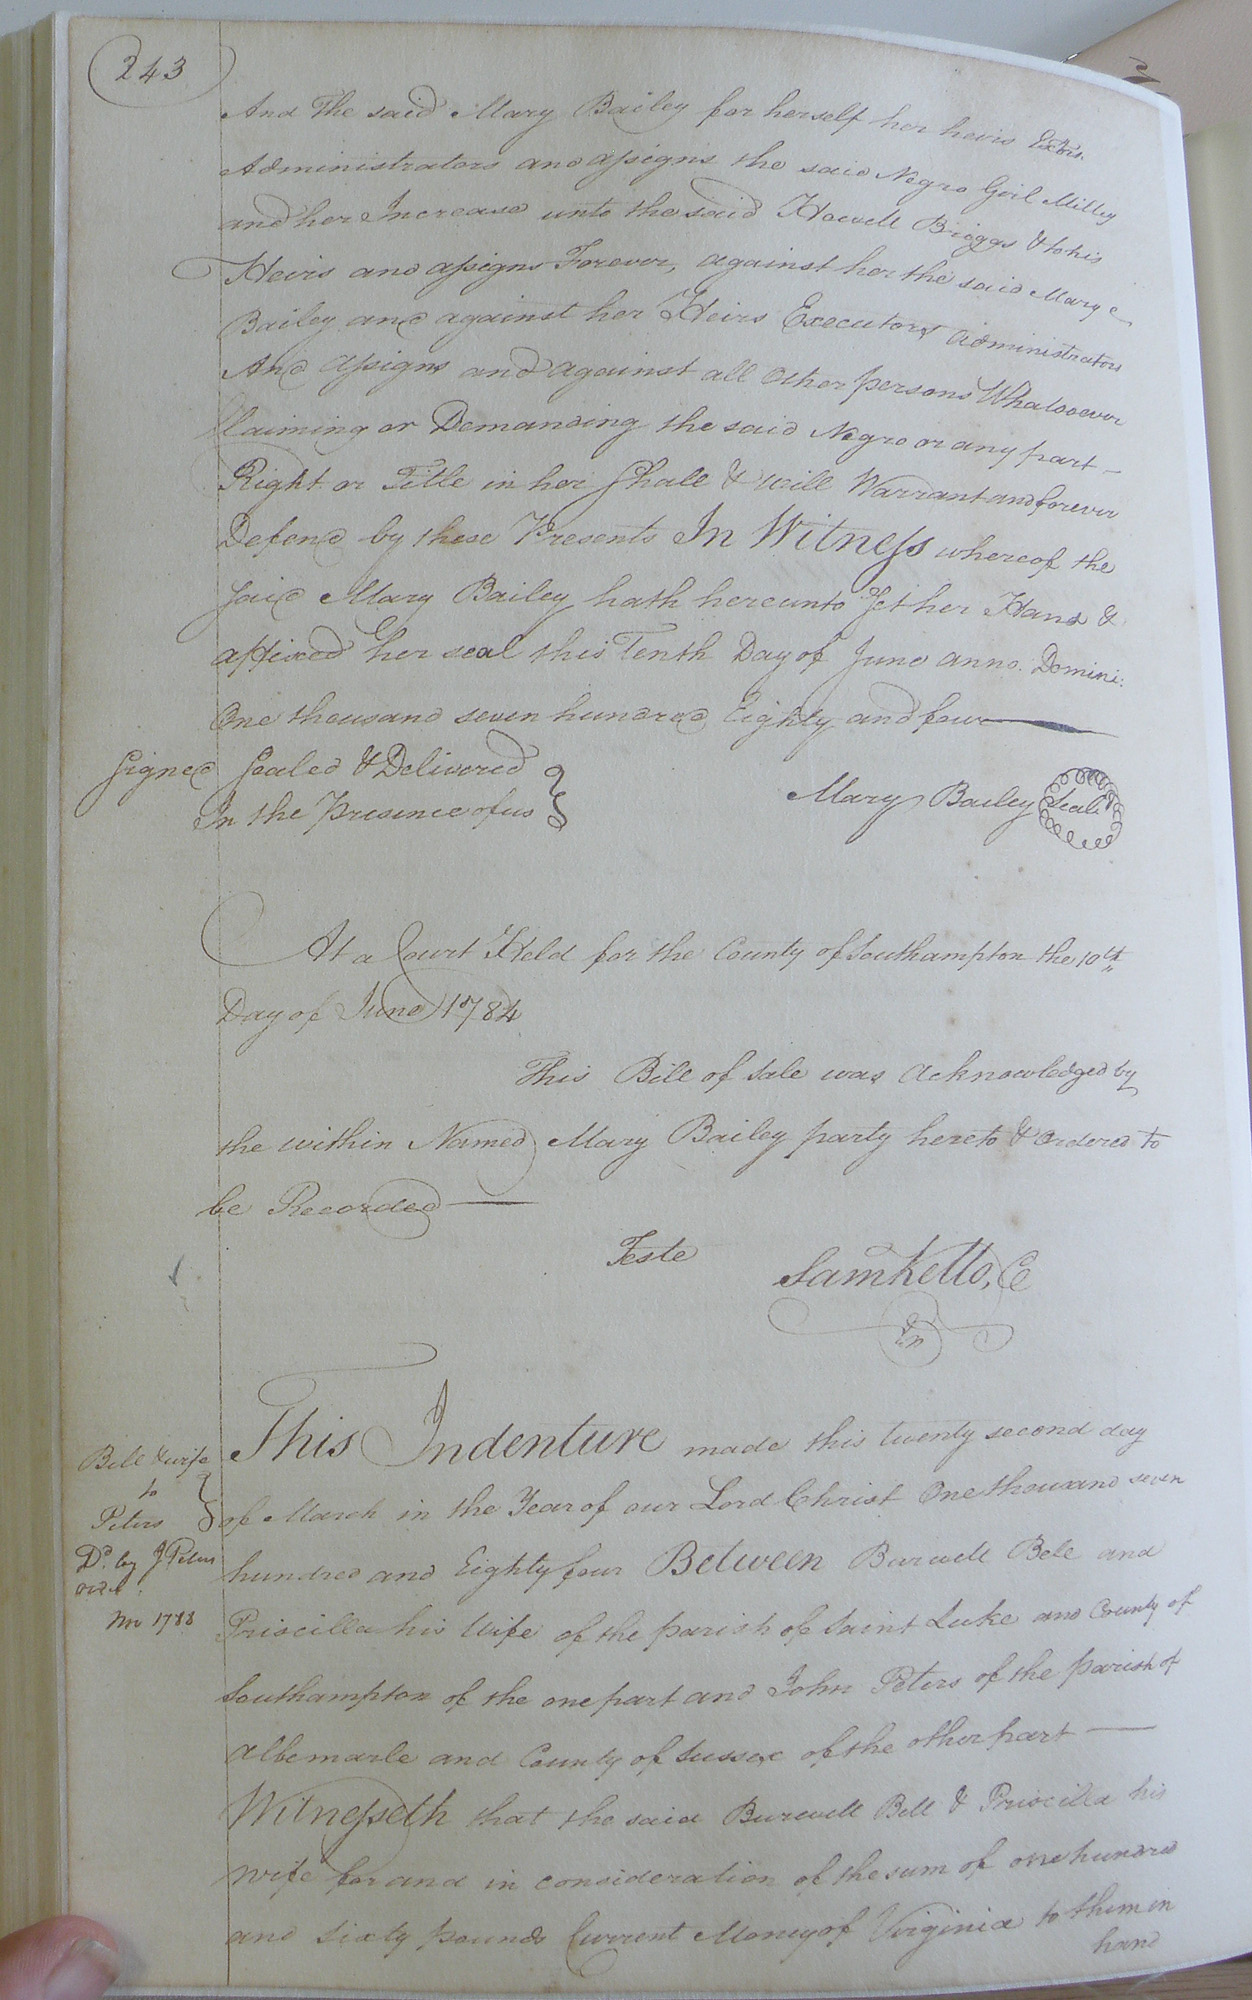 243
And The said Mary Bailey for herself her heirs Extrs.
Administrators and assigns the said Negro Girl Milley
and her Increase unto the said Howell Briggs & to his
Heirs and assigns Forever, against her the said Mary
Bailey and against her Heirs Executors administrators
And assigns and against all other persons Whatsoever
Claiming or Demanding the said Negro or any part —
Right or Title in her Shall & will Warrant and forever
Defend by these Presents In Witness whereof the
Said Mary Bailey hath hereunto Set her Hand &
affixed her seal this Tenth Day of June anno. Domini:
One thousand seven hundred Eighty and four
Signed Sealed & Delivered
In the Presence of us
Mary Bailey Seal
At a Court Held for the County of Southampton the 10th
Day of June 1784
This Bill of Sale was Acknowledged by
the within Named Mary Bailey party hereto & Ordered to
be Recorded —
Teste
Sam Kello, C
Bell & wife
to
Peters
Dd. by J Peters
order
Nov 1788
This Indenture made this twenty second day
of March in the Year of our Lord Christ One thousand seven
hundred and Eighty four Between Burwell Bell and
Priscilla his Wife of the parish of Saint Luke and County of
Southampton of the one part and John Peters of the parish of
Albemarle and County of Sussex of the other part —
Witnesseth that the said Burwell Bell & Priscilla his
Wife for and in consideration of the sum of one hundred
and Sixty pounds Current Money of Virginia to them in
hand